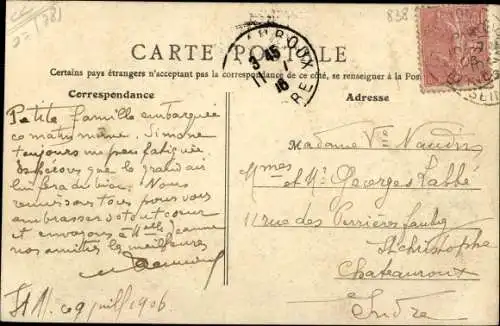 838
3 45
CARTE POSTALE
Certains pays étrangers n'acceptant pas la correspondance de ce côté, se renseigner à la Pos
Correspondance
Adresse
Petite famille embarquée
ce matin même. Simone
toujours un peu fatiguée
que le grand air
lui fera du bien. Nous
réunissons tous pour vous
embrasser de tout cœur
et envoyons à Melle Jeanne
nos amitiés les meilleures
9 juill 1906
Madame Vve Naudin
Mmes et Mr Georges Labbé
11 rue des Perrières
St Christophe
Chateauroux
Indre